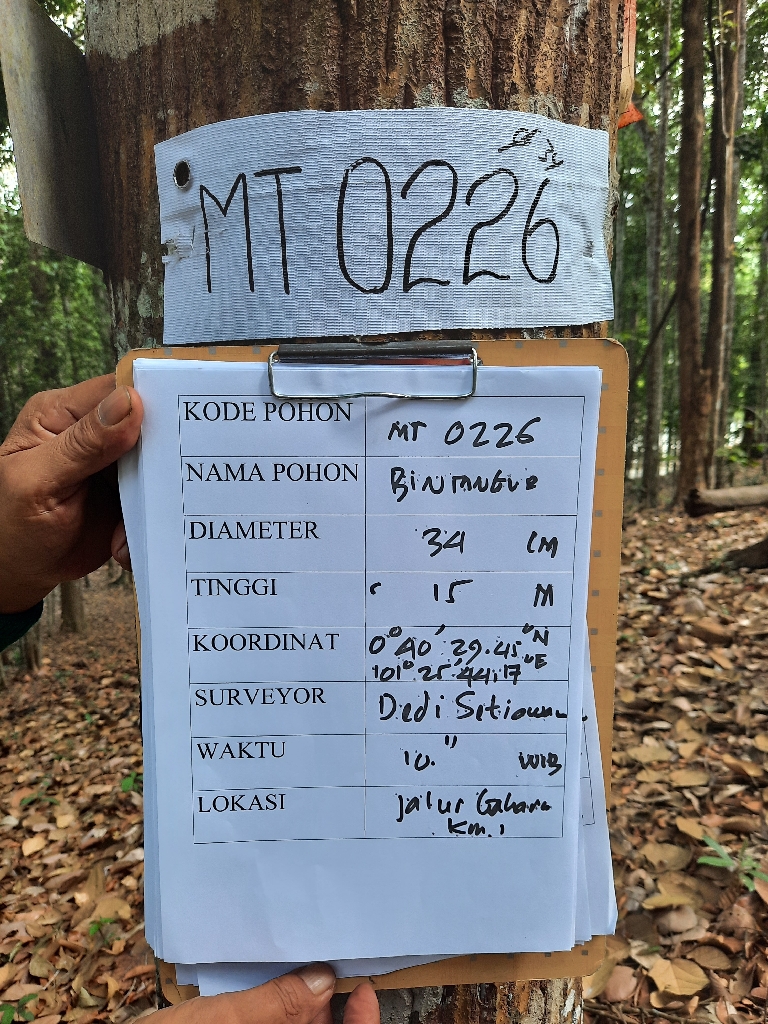 34
MT 0226
KODE POHON MT 0226
NAMA POHON BINTANGUR
DIAMETER 34 CM
TINGGI 15 M
KOORDINAT 0° 40' 29.45"N
101° 25' 44.17"E
SURVEYOR Dedi Setiawan
WAKTU 10." WIB
LOKASI jalur Gaharu
Km. 1